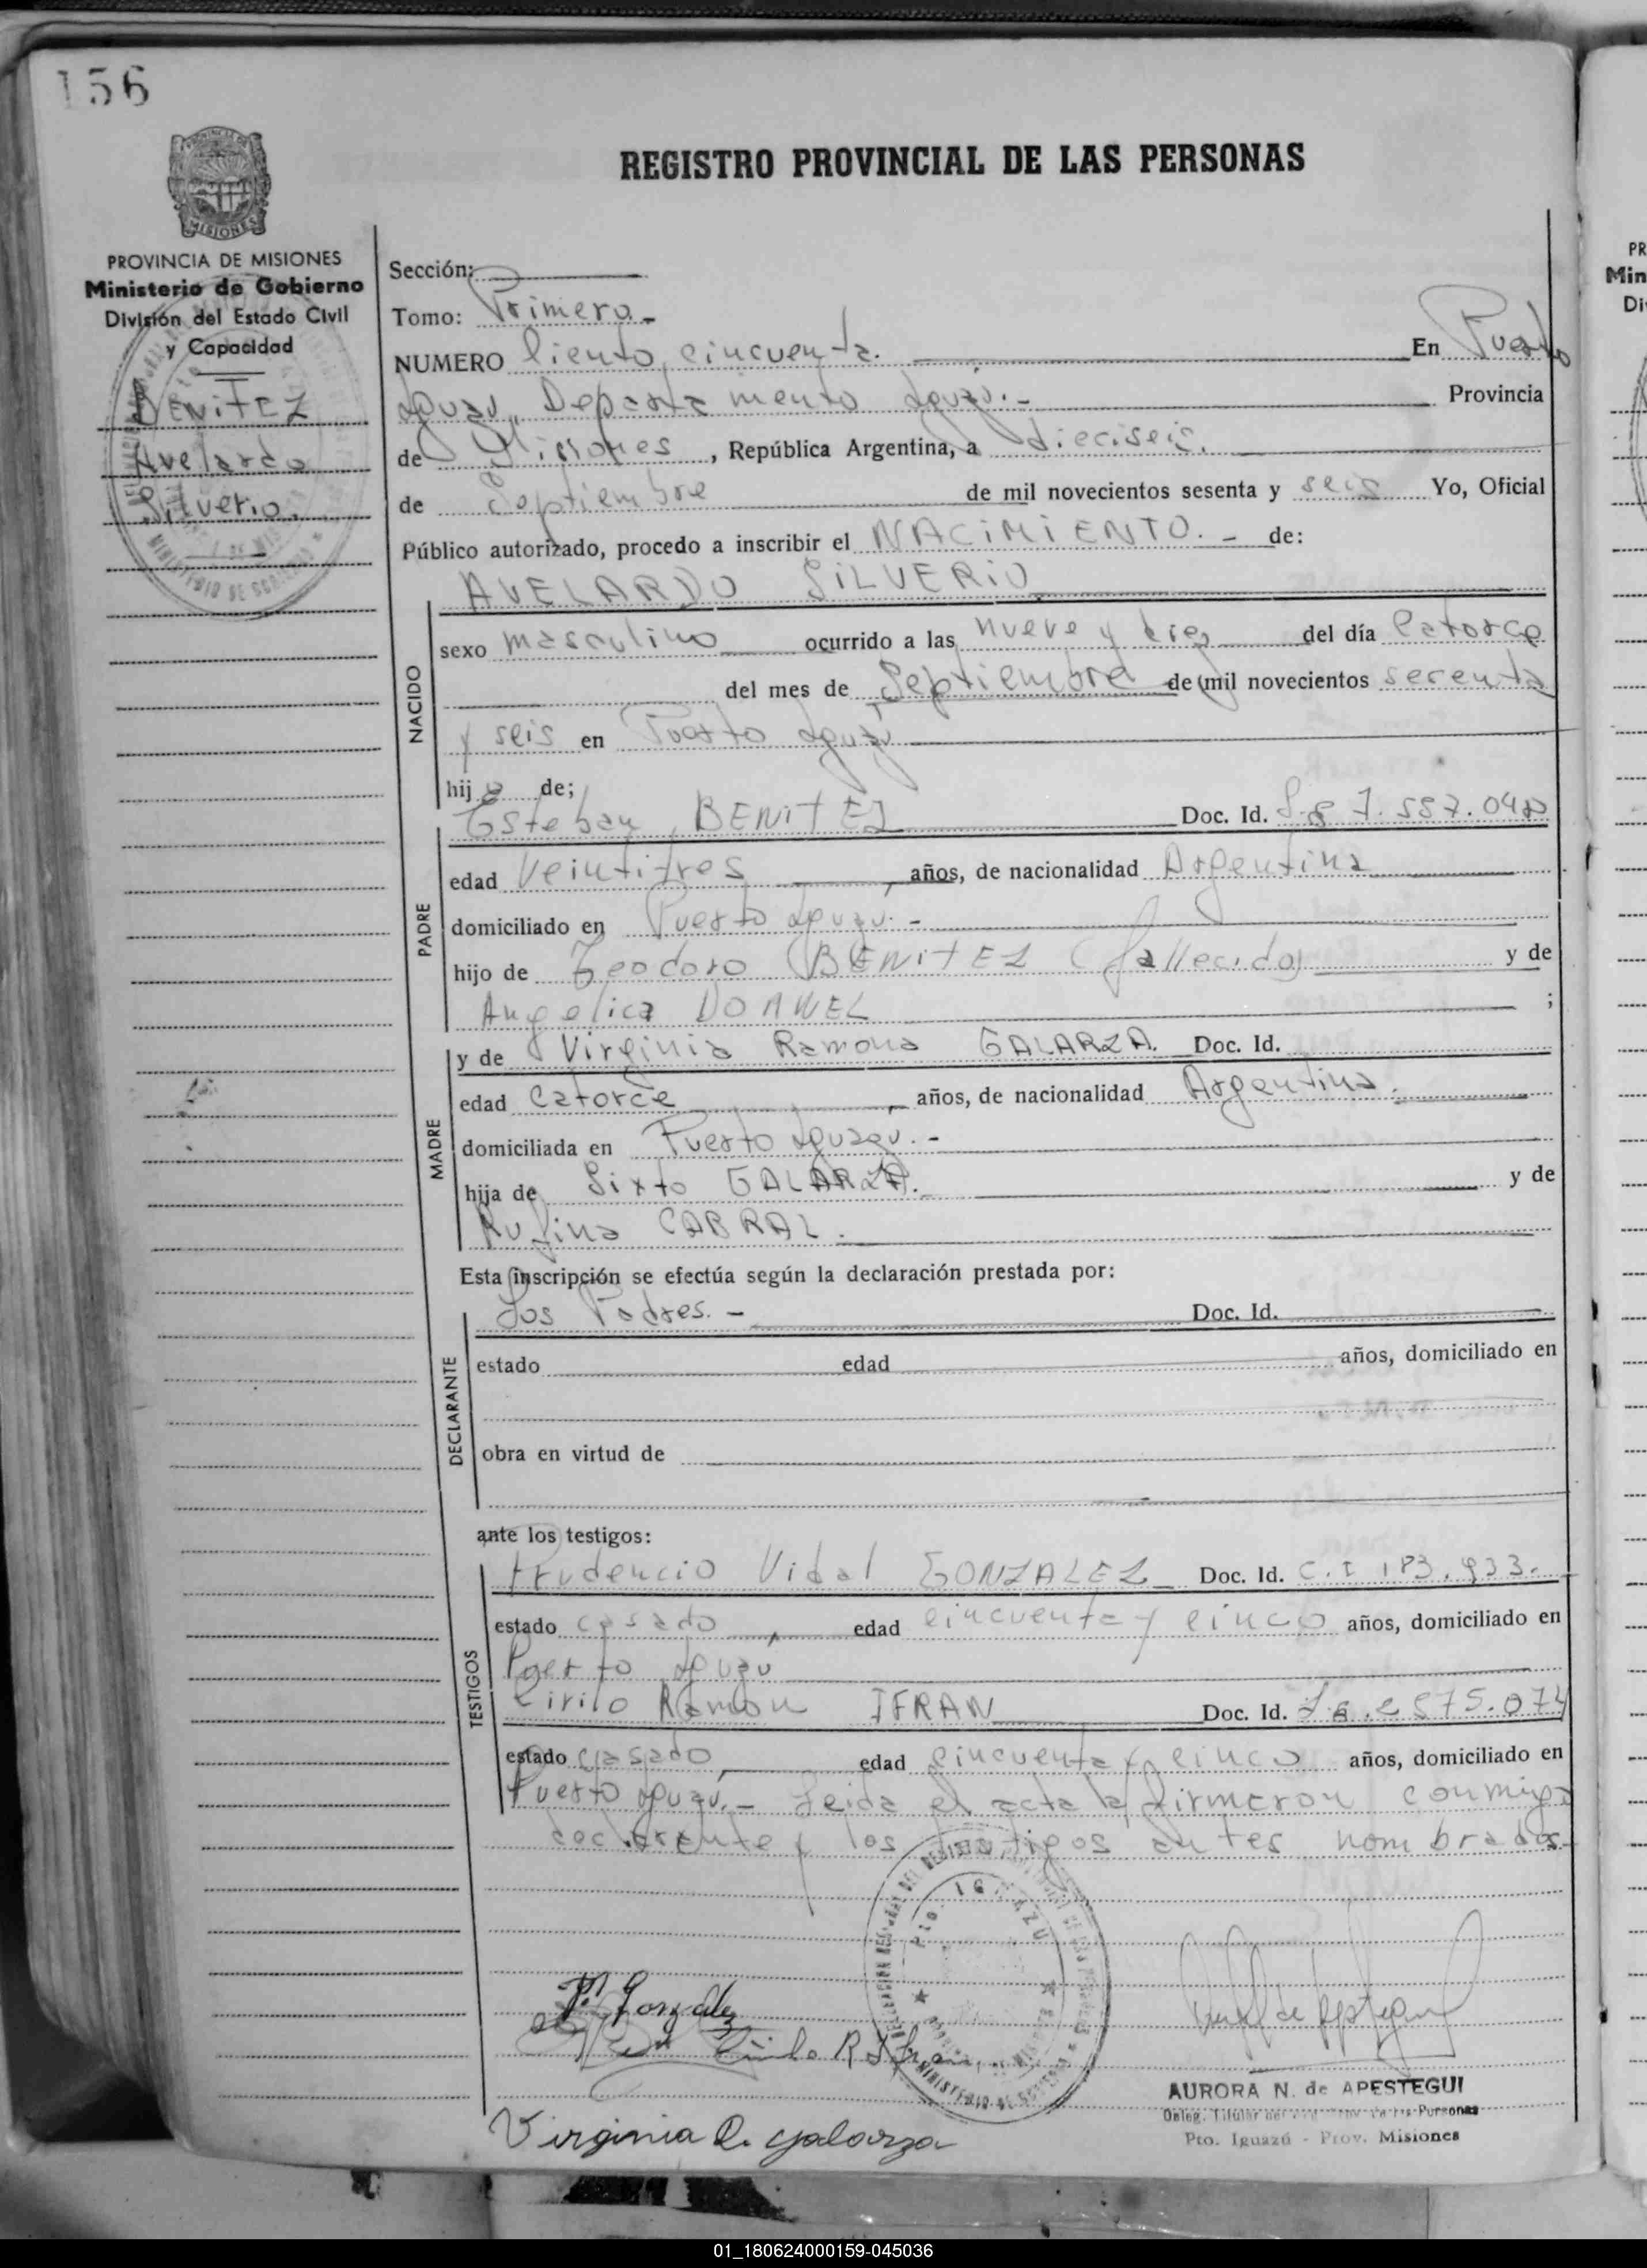 156
REGISTRO PROVINCIAL DE LAS PERSONAS
PROVINCIA DE MISIONES
Ministerio de Gobierno
División del Estado Civil
y Capacidad
BENITEZ
Avelardo
Silverio.
Sección:
Tomo: Primero.-
NUMERO Ciento cincuenta. En Puerto
Iguazú, Departamento Iguazú.- Provincia
de Misiones, República Argentina, a dieciseis.
de Septiembre de mil novecientos sesenta y seis Yo, Oficial
Público autorizado, procedo a inscribir el NACIMIENTO.- de:
AVELARDO SILVERIO
NACIDO
sexo masculino ocurrido a las nueve y diez del día Catorce
del mes de Septiembre de mil novecientos secenta
y seis en Puerto Iguazú
hijo de;
PADRE
Esteban BENITEZ Doc. Id. 7.557.040
edad Veintitres, años, de nacionalidad Argentina
domiciliado en Puerto Iguazu.-
hijo de Teodoro BENITEZ (fallecido) y de
Angelica DOANEL;
MADRE
y de Virginia Ramona GALARZA. Doc. Id.
edad Catorce, años, de nacionalidad Argentina.
domiciliada en Puerto Iguazu.-
hija de Sixto GALARZA. y de
Rufina CABRAL.
Esta inscripción se efectúa según la declaración prestada por:
DECLARANTE
Los Padres.- Doc. Id.
estado edad años, domiciliado en
obra en virtud de
ante los testigos:
TESTIGOS
Prudencio Vidal GONZALEZ Doc. Id. C.I 183.933.
estado casado, edad cincuenta y cinco años, domiciliado en
Puerto Iguazu
Cirilo Ramón IFRAN Doc. Id. 2575.074
estado casado, edad cincuenta y cinco años, domiciliado en
Puerto Iguazu.- Leida el acta la firmaron conmigo
declarante y los testigos antes nombrados.-
Pto. IGUAZU
P. V. Gonzalez
Cirilo R Ifran
Virginia R. galarza
AURORA N. de APESTEGUI
Deleg. Titular de las Personas
Pto. Iguazú - Prov. Misiones
01_180624000159-045036